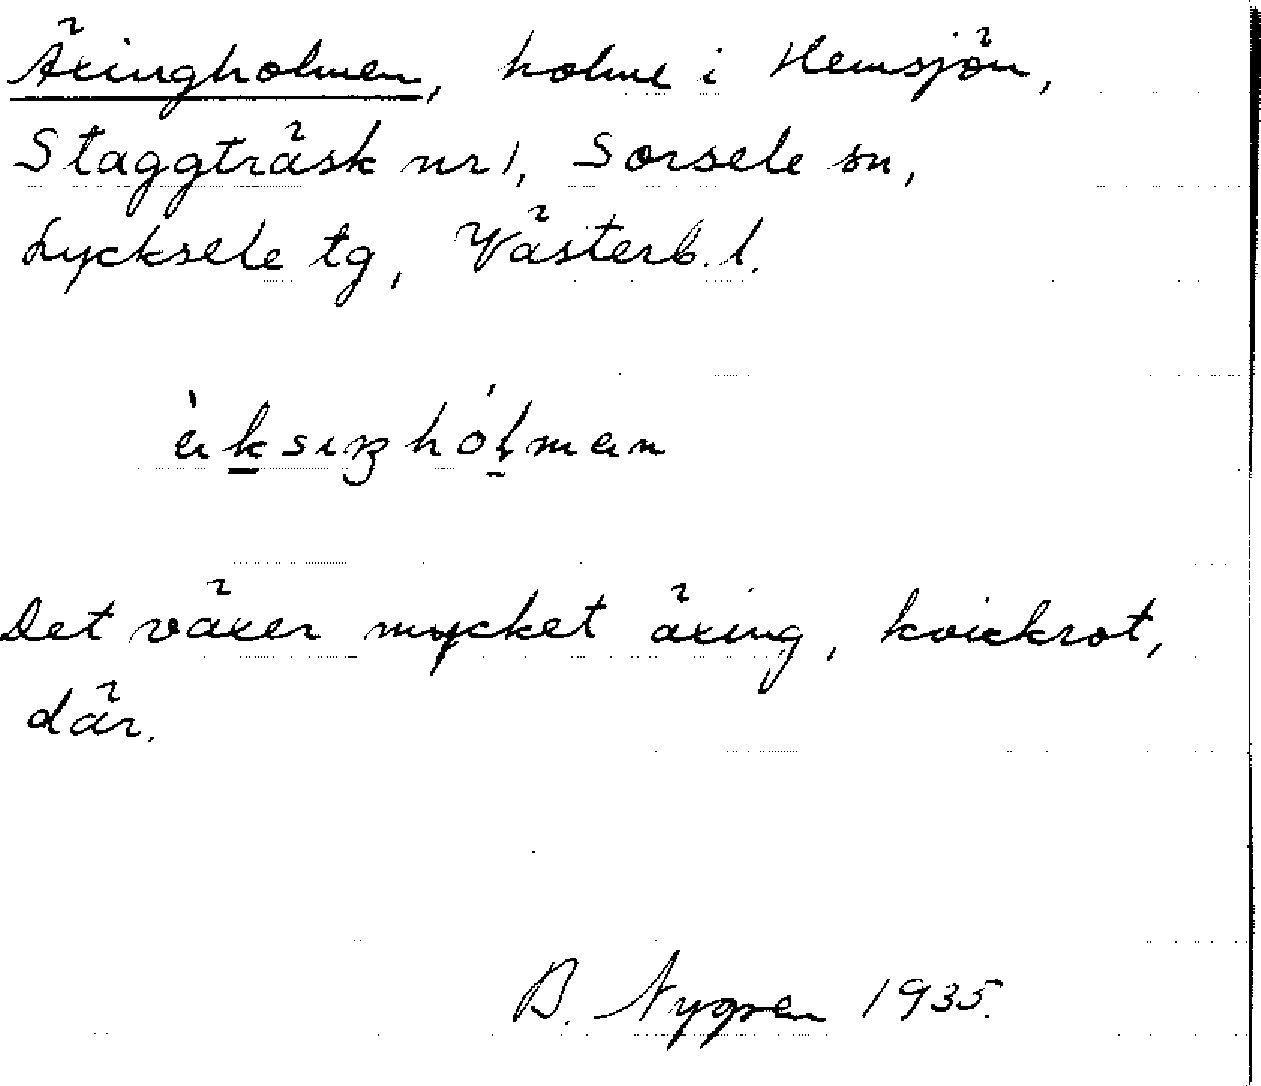 Äxingholmen, holme i Hemsjön,
Staggträsk nr 1, Sorsele sn,
Lycksele tg, Västerb. l.
Det växer mycket äxing, kvickrot,
där.
B. Nygren 1935.